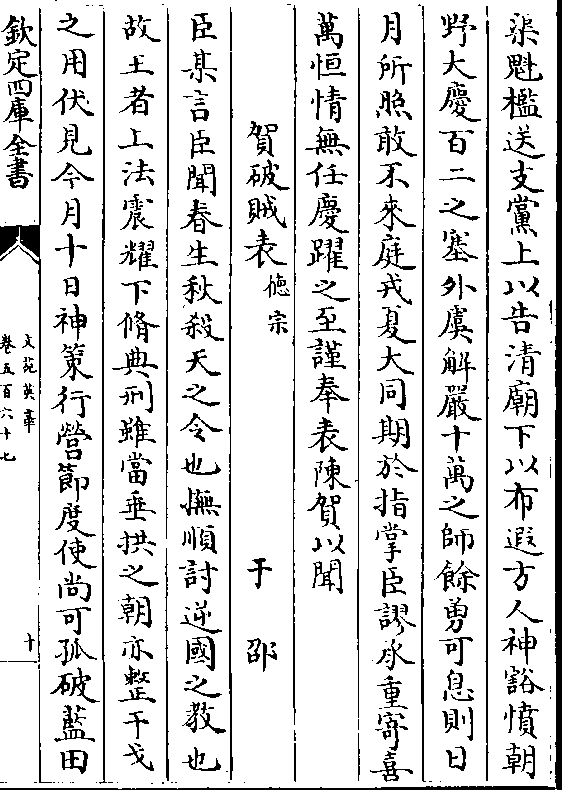 渠魁檻送支黨上以告清廟下以布遐方人神豁憤朝
野大慶百二之塞外虞解嚴十萬之師餘勇可息則日
月所照敢不來庭戎夏大同期於指掌臣謬承重寄喜
萬恒情無任慶躍之至謹奉表陳賀以聞
賀破賊表 德宗 于邵
臣某言臣聞春生秋殺天之令也撫順討逆國之教也
故王者上法震耀下脩典刑雖當垂拱之朝亦整干戈
之用伏見今月十日神策行營節度使尚可孤破藍田
欽定四庫全書
文苑英華
卷五百六十七
十